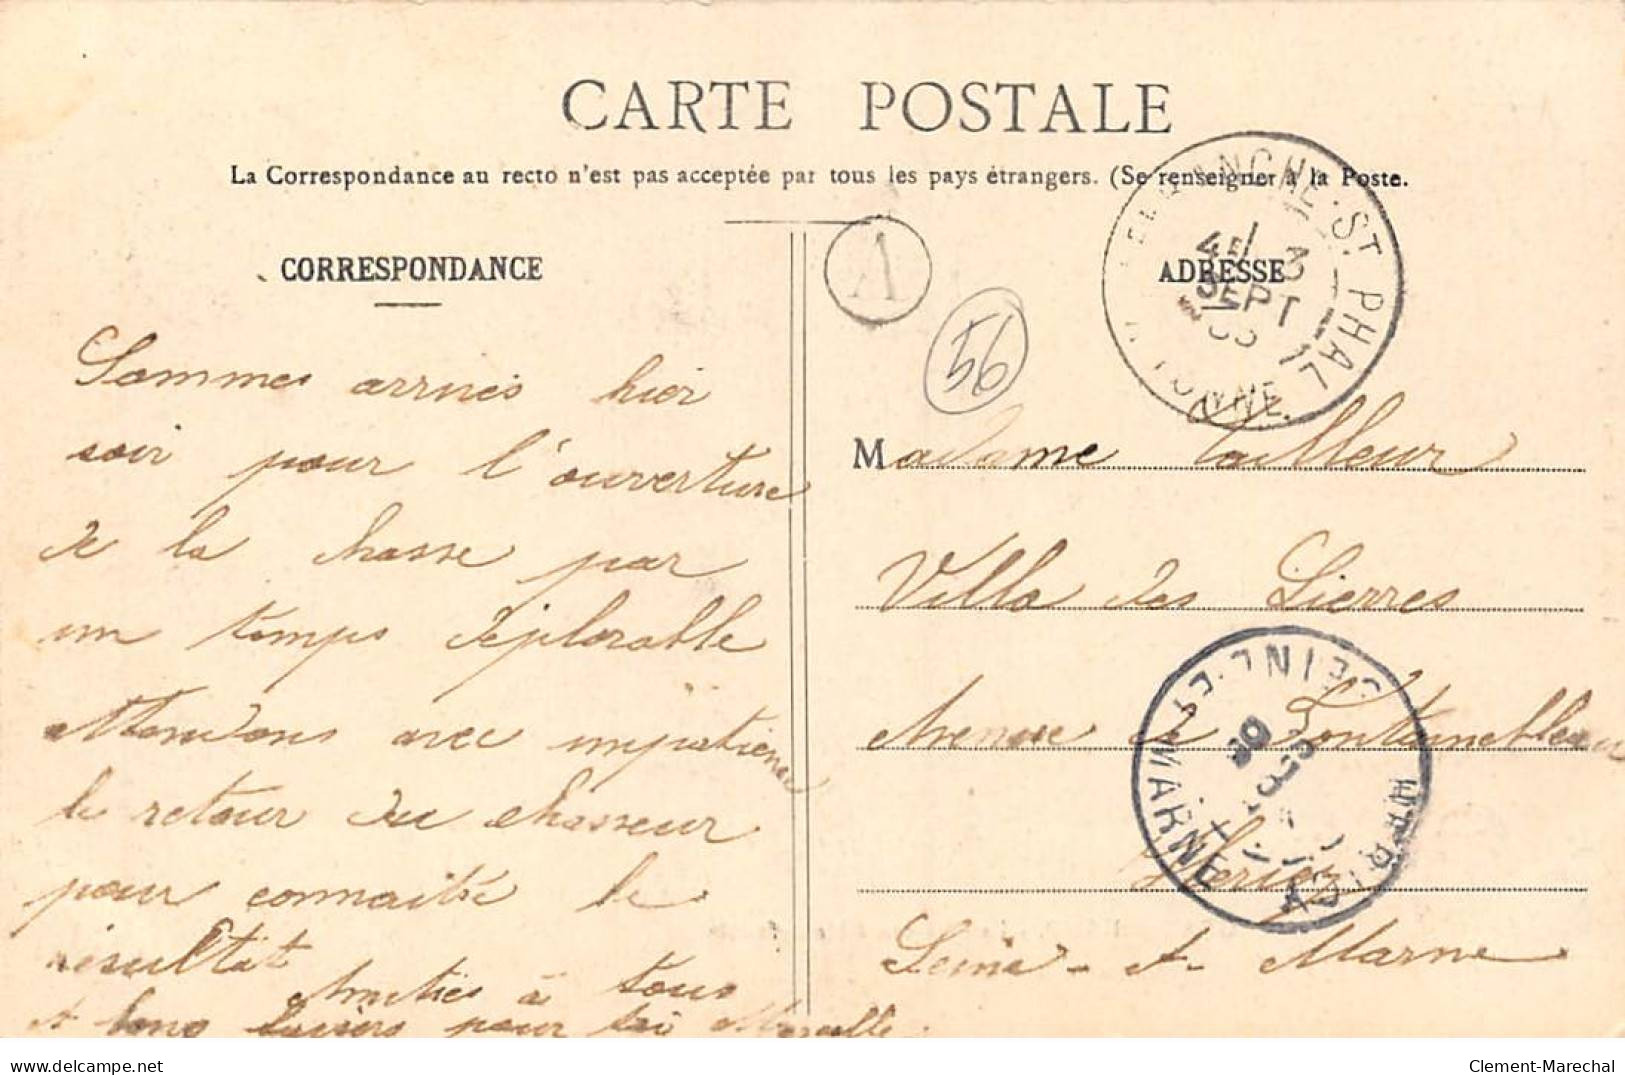 CARTE POSTALE
La Correspondance au recto n'est pas acceptée par tous les pays étrangers. (Se renseigner à la Poste.
CORRESPONDANCE
A
56
ADRESSE
ST PHAL
YONNE.
4E 3
SEPT
Sommes arrivés hier
soir pour l'ouverture
de la chasse par
un temps déplorable
Attendons avec impatience
le retour du chasseur
pour connaître le
résultat
Amitiés à tous
et bons baisers pour toi Marcelle.
Madame Tailleur
Villa des Lierres
Avenue de Fontainebleau
Héricy
Seine-et-Marne
SEINE-ET-MARNE
HÉRICY
delcampe.net
Clement-Marechal